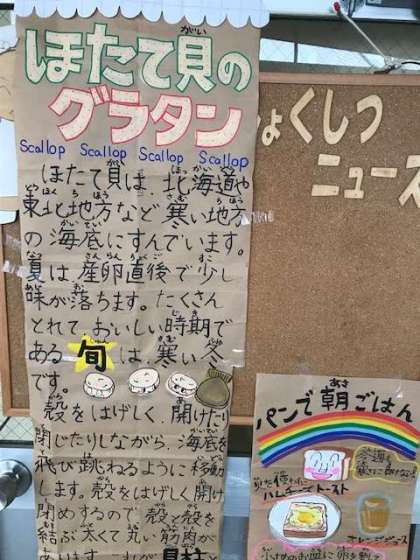 ほたて貝の
グラタン
Scallop Scallop Scallop Scallop
ほたて貝は、北海道や
東北地方など寒い地方
の海底にすんでいます。
夏は産卵直後で少し
味が落ちます。たくさん
とれて、おいしい時期で
ある旬は、寒い冬
です。
殻をはげしく、開けたり
閉じたりしながら、海底を
飛び跳ねるように移動
します。殻をはげしく開け
閉めするので、殻と殻を
結ぶ太くて丸い筋肉が
ょくしつ
ニュース
パンで朝ごはん
ハムチーズトースト
オレンジジュース